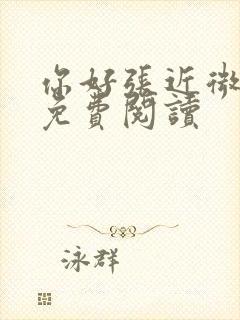 你好張近微
免費閱讀
泳群